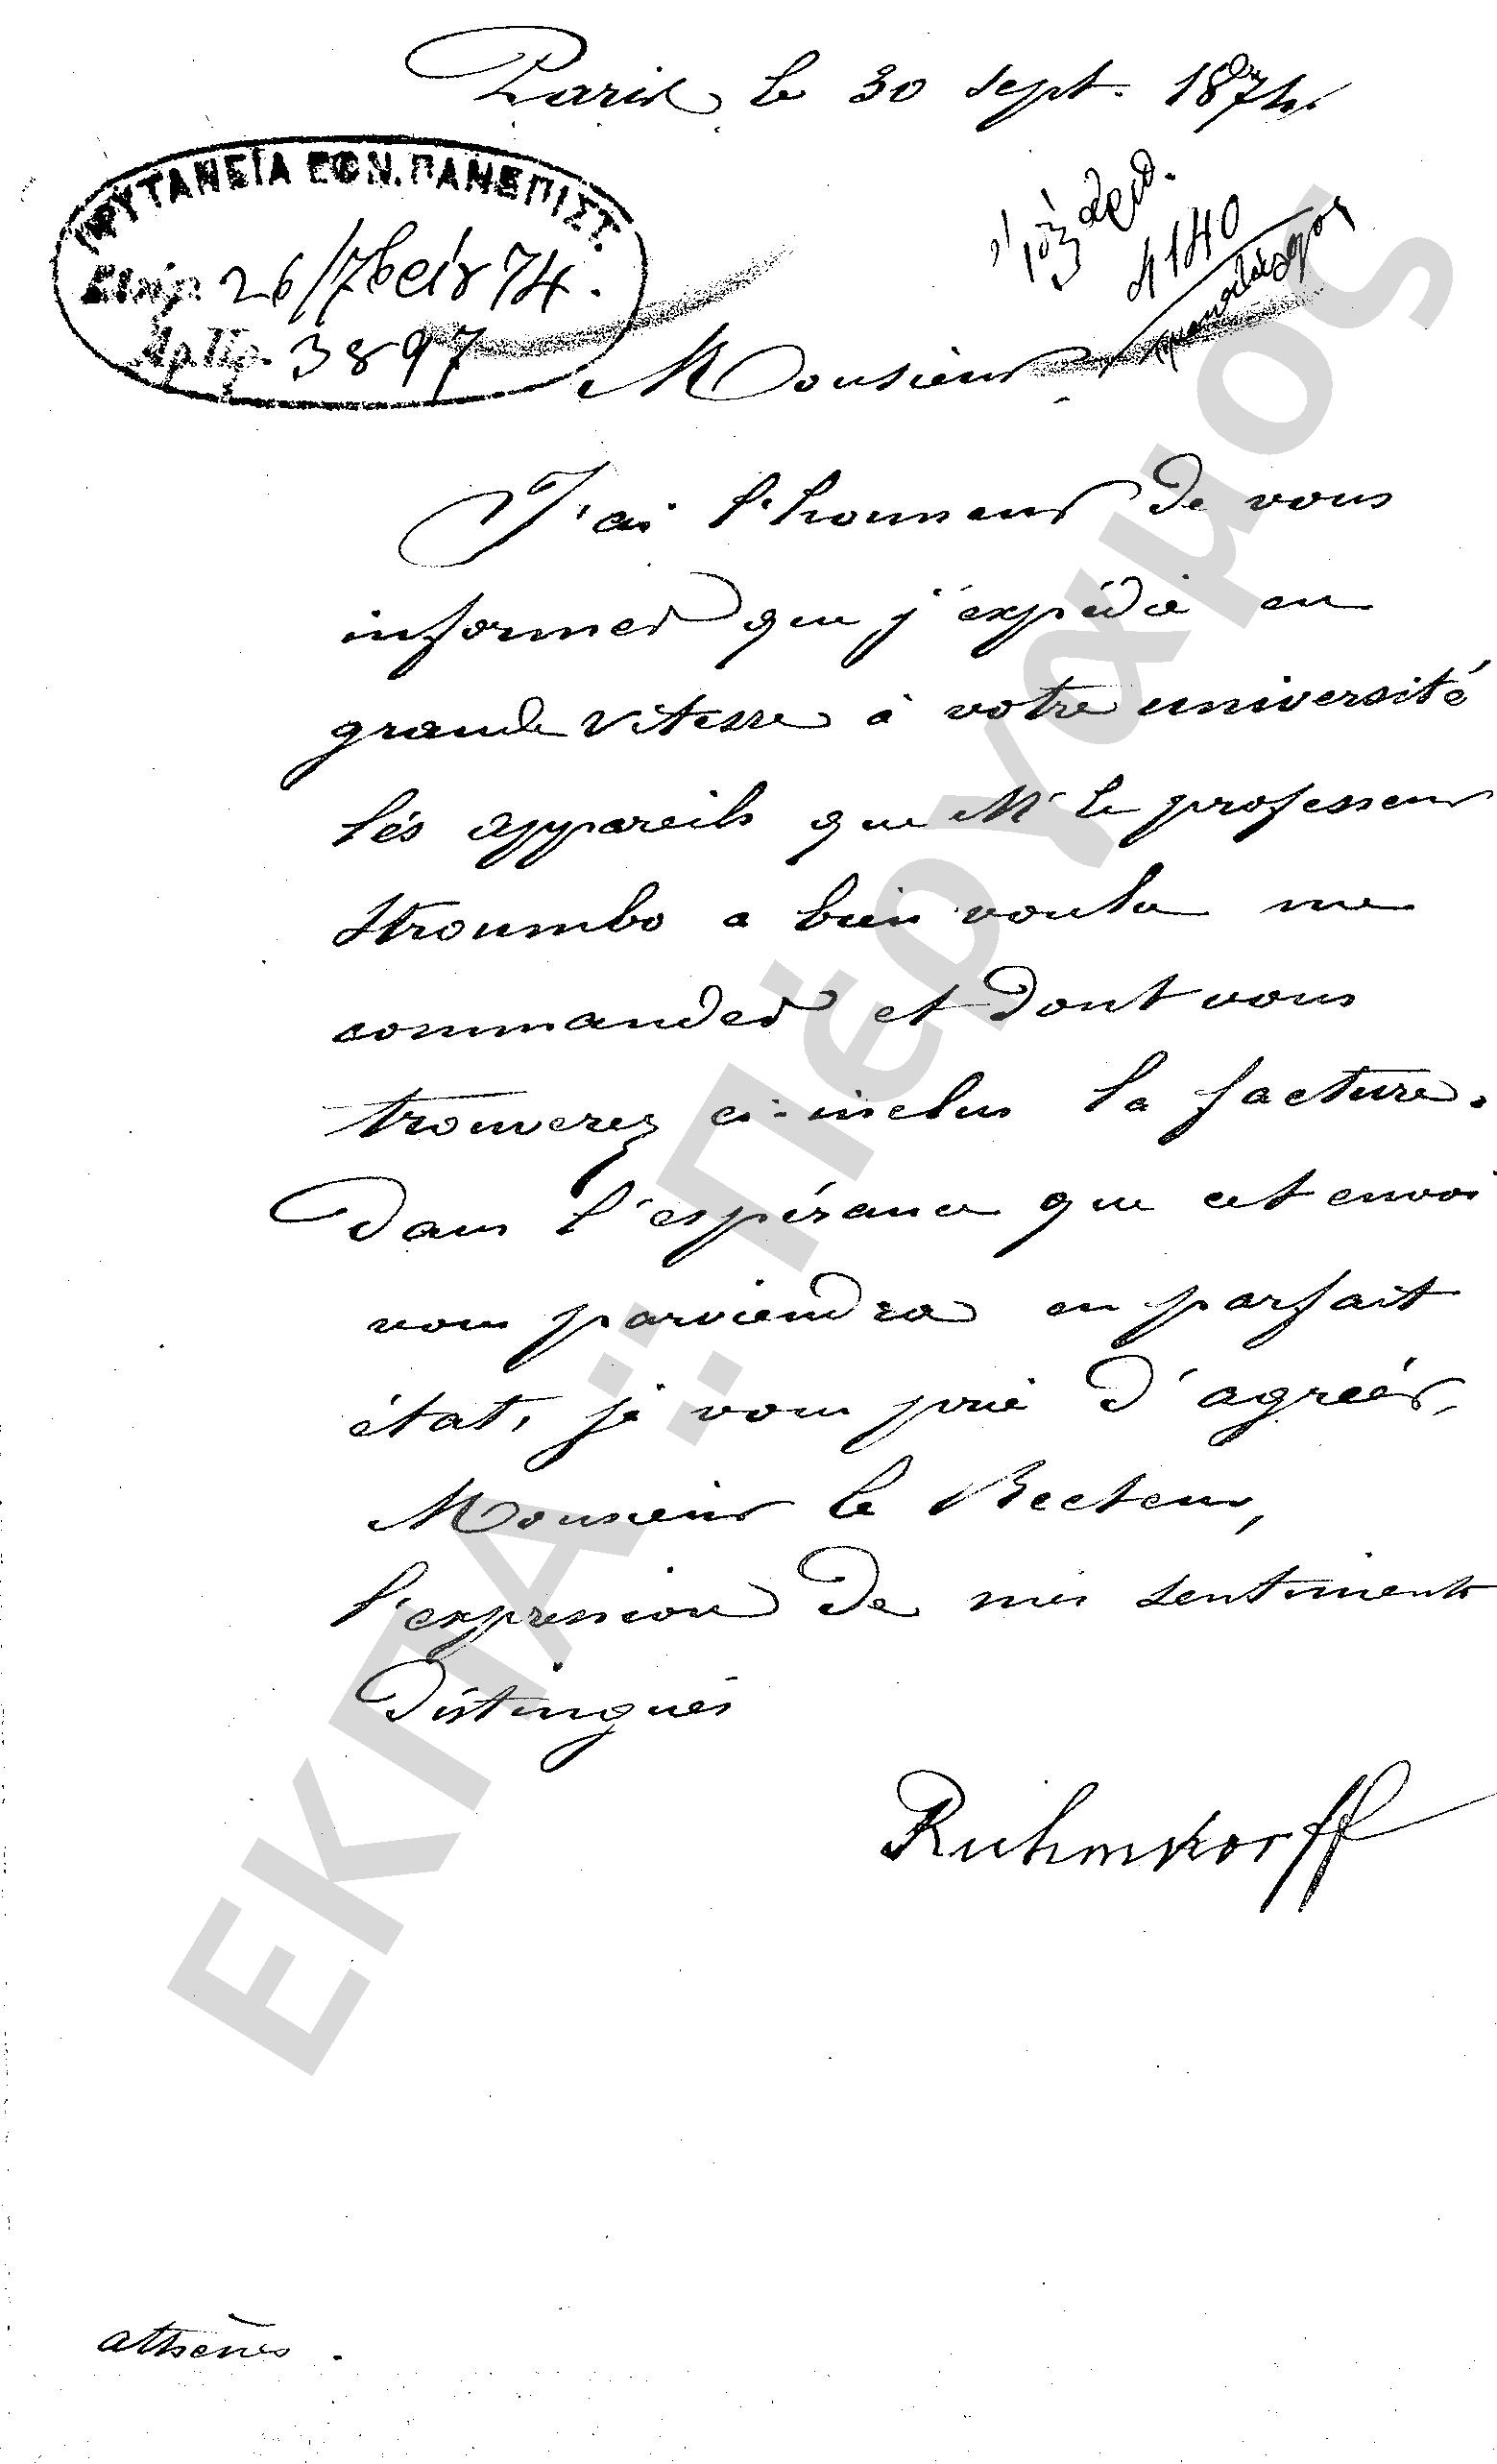 Paris le 30 sept. 1874
ΠΡΥΤΑΝΕΙΑ ΕΘΝ. ΠΑΝΕΠΙΣΤ.
Εισήχ. 26/7βρίου 74.
Αρ. Πρ. 3897
αριθ.
4140
Monsieur
J'ai l'honneur de vous
informer que j'expédie en
grande vitesse à votre université
les appareils que Mr le professeur
Stroumbo a bien voulu me
commander et dont vous
trouverez ci-inclus la facture.
Dans l'espérance que cet envoi
vous parviendra en parfait
état, je vous prie d'agréer,
Monsieur le Recteur,
l'expression de mes sentiments
distingués
Ruhmkorff
athènes.
ΕΚΠΑ :: Πέργαμος